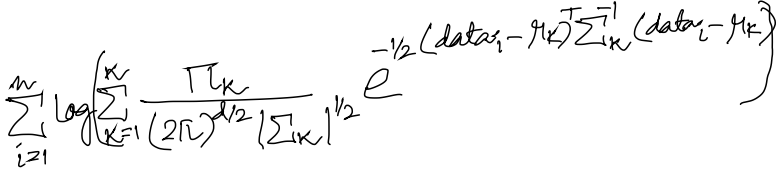 \sum_{i=1}^{n} \log\left(\sum_{k=1}^{K} \frac{\pi_k}{(2\pi)^{d/2} |\Sigma_k|^{1/2}} e^{-1/2 (data_i - \mu_k)^T \Sigma_k^{-1} (data_i - \mu_k)}\right)